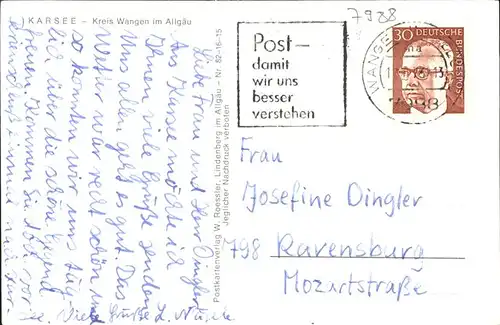 KARSEE – Kreis Wangen im Allgäu
Liebe Frau und Herr Dingler
Aus Karsee möchte ich
Ihnen viele Grüße senden
Uns allen geht es gut. Das
Wetter war recht schön und
so konnten wir uns
lich über die schöne Gegend
freuen. Kommen Sie doch
einmal
Viele Grüße
Postkartenverlag W. Roessler, Lindenberg im Allgäu – Nr. 82-16-15
Jeglicher Nachdruck verboten
7988
Post–
damit
wir uns
besser
verstehen
WANGEN
7988
30
DEUTSCHE
BUNDESPOST
Frau
Josefine Dingler
798 Ravensburg
Mozartstraße